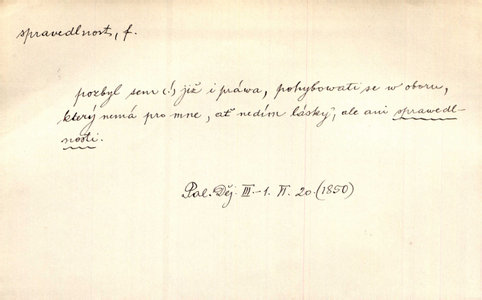 spravedlnost, f.
pozbyl sem (!) již i práwa, pohybowati se w oboru,
který nemá pro mne, ať nedím lásky, ale ani sprawedl-
nosti.
Pal. Děj. III.-1. VI. 20. (1850)